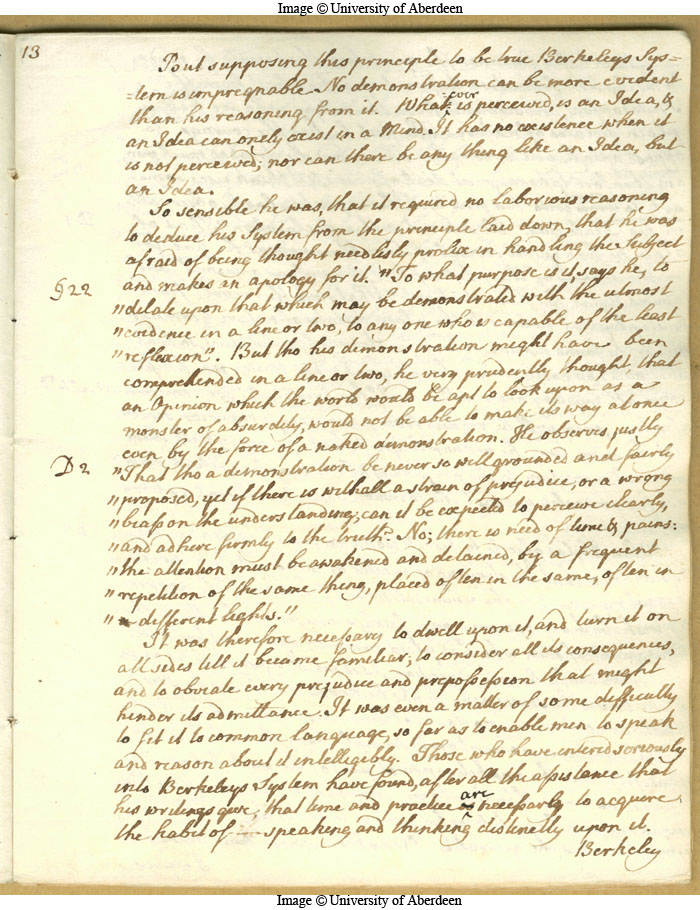 Image © University of Aberdeen
13
But supposing this principle to be true Berkeleys Sys=
=tem is impregnable. No demonstration can be more evident
than his reasoning from it. What ever is perceived, is an Idea, &
an Idea can onely exist in a Mind. It has no existence when it
is not perceived; nor can there be any thing like an Idea, but
an Idea.
So sensible he was, that it required no laborious reasoning
to deduce his System from the principle laid down, that he was
afraid of being thought needlesly prolix in handling the Subject
and makes an apology for it. "To what purpose is it, says he, to
§22
"dilate upon that which may be demonstrated with the utmost
"evidence in a line or two, to any one who is capable of the least
"reflexion". But tho his demonstration might have been
comprehended in a line or two, he very prudently thought, that
an Opinion which the world would be apt to look upon as a
monster of absurdity, would not be able to make its way at once
even by the force of a naked demonstration. He observes justly
D2
"That tho a demonstration be never so well grounded and fairly
"proposed, yet if there is withall a strain of prejudice, or a wrong
"biass on the understanding; can it be expected to perceive clearly,
"and adhere firmly to the truth? No; there is need of time & pains:
"the attention must be awakened and detained, by a frequent
"repetition of the same thing, placed often in the same, often in
"different lights."
It was therefore necessary to dwell upon it, and turn it on
all sides till it became familiar; to consider all its consequences,
and to obviate every prejudice and prepossession that might
hinder its admittance. It was even a matter of some difficulty
to fit it to common language, so far as to enable men to speak
and reason about it intelligibly. Those who have entered seriously
into Berkeleys System have found, after all the assistance that
his writings give, that time and practice are necessary to acquire
the habit of speaking and thinking distinctly upon it.
Berkeley
Image © University of Aberdeen